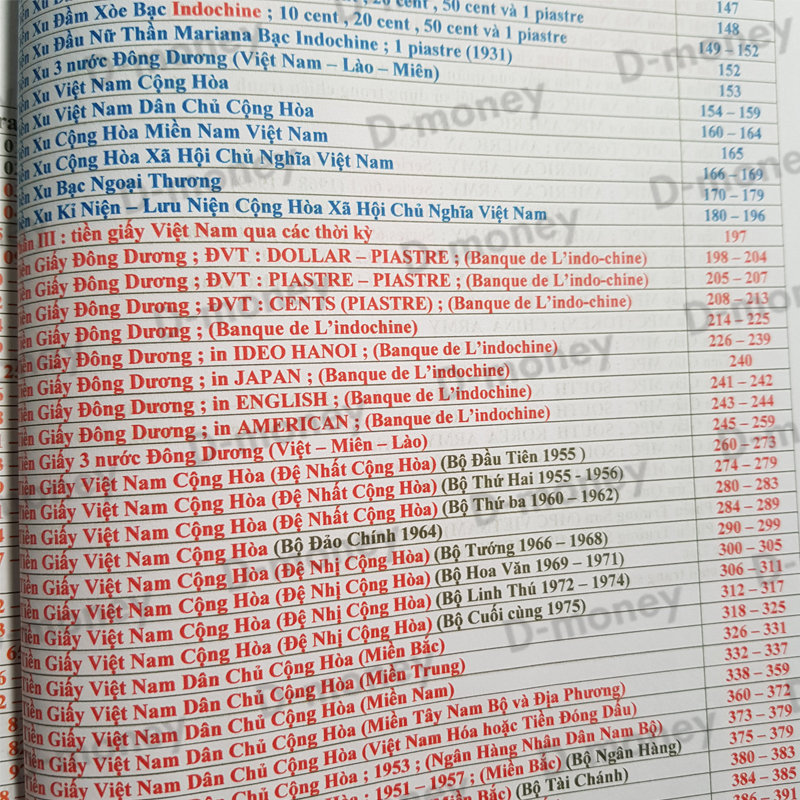 , 20 cent , 50 cent và 1 piastre 147
Xu Đầm Xòe Bạc Indochine ; 10 cent , 20 cent , 50 cent và 1 piastre 148
Xu Đầu Nữ Thần Mariana Bạc Indochine ; 1 piastre (1931) 149 – 152
Xu 3 nước Đông Dương (Việt Nam – Lào – Miên) 152
Xu Việt Nam Cộng Hòa 153
Xu Việt Nam Dân Chủ Cộng Hòa 154 – 159
Xu Cộng Hòa Miền Nam Việt Nam 160 – 164
Xu Cộng Hòa Xã Hội Chủ Nghĩa Việt Nam 165
166 – 169
Xu Bạc Ngoại Thương 170 – 179
Xu Kỉ Niện – Lưu Niện Cộng Hòa Xã Hội Chủ Nghĩa Việt Nam 180 – 196
III : tiền giấy Việt Nam qua các thời kỳ 197
Tiền Giấy Đông Dương ; ĐVT : DOLLAR – PIASTRE ; (Banque de L’indo-chine) 198 – 204
Tiền Giấy Đông Dương ; ĐVT : PIASTRE – PIASTRE ; (Banque de L’indo-chine) 205 – 207
Tiền Giấy Đông Dương ; ĐVT : CENTS (PIASTRE) ; (Banque de L’indo-chine) 208 – 213
Tiền Giấy Đông Dương ; (Banque de L’indochine) 214 – 225
Tiền Giấy Đông Dương ; in IDEO HANOI ; (Banque de L’indochine) 226 – 239
Tiền Giấy Đông Dương ; in JAPAN ; (Banque de L’indochine) 240
Tiền Giấy Đông Dương ; in ENGLISH ; (Banque de L’indochine) 241 – 242
Tiền Giấy Đông Dương ; in AMERICAN ; (Banque de L’indochine) 243 – 244
Tiền Giấy 3 nước Đông Dương (Việt – Miên – Lào) 245 – 259
Tiền Giấy Việt Nam Cộng Hòa (Đệ Nhất Cộng Hòa) (Bộ Đầu Tiên 1955 ) 260 – 273
Tiền Giấy Việt Nam Cộng Hòa (Đệ Nhất Cộng Hòa) (Bộ Thứ Hai 1955 - 1956) 274 – 279
Tiền Giấy Việt Nam Cộng Hòa (Đệ Nhất Cộng Hòa) (Bộ Thứ ba 1960 – 1962) 280 – 283
Tiền Giấy Việt Nam Cộng Hòa (Bộ Đảo Chính 1964) 284 – 289
Tiền Giấy Việt Nam Cộng Hòa (Đệ Nhị Cộng Hòa) (Bộ Tướng 1966 – 1968) 290 – 299
Tiền Giấy Việt Nam Cộng Hòa (Đệ Nhị Cộng Hòa) (Bộ Hoa Văn 1969 – 1971) 300 – 305
Tiền Giấy Việt Nam Cộng Hòa (Đệ Nhị Cộng Hòa) (Bộ Linh Thú 1972 – 1974) 306 – 311
Tiền Giấy Việt Nam Cộng Hòa (Đệ Nhị Cộng Hòa) (Bộ Cuối cùng 1975) 312 – 317
Tiền Giấy Việt Nam Dân Chủ Cộng Hòa (Miền Bắc) 318 – 325
Tiền Giấy Việt Nam Dân Chủ Cộng Hòa (Miền Trung) 326 – 331
Tiền Giấy Việt Nam Dân Chủ Cộng Hòa (Miền Nam) 332 – 337
Tiền Giấy Việt Nam Dân Chủ Cộng Hòa (Miền Tây Nam Bộ và Địa Phương) 338 – 359
Tiền Giấy Việt Nam Dân Chủ Cộng Hòa (Việt Nam Hóa hoặc Tiền Đóng Dấu) 360 – 372
Tiền Giấy Việt Nam Dân Chủ Cộng Hòa ; 1953 ; (Ngân Hàng Nhân Dân Nam Bộ) 373 – 379
Cộng Hòa ; 1951 – 1957 ; (Miền Bắc) (Bộ Ngân Hàng) 375 – 379
Miền Bắc) (Bộ Tài Chánh) 380 – 383
384 – 385
386 – 391
D-money